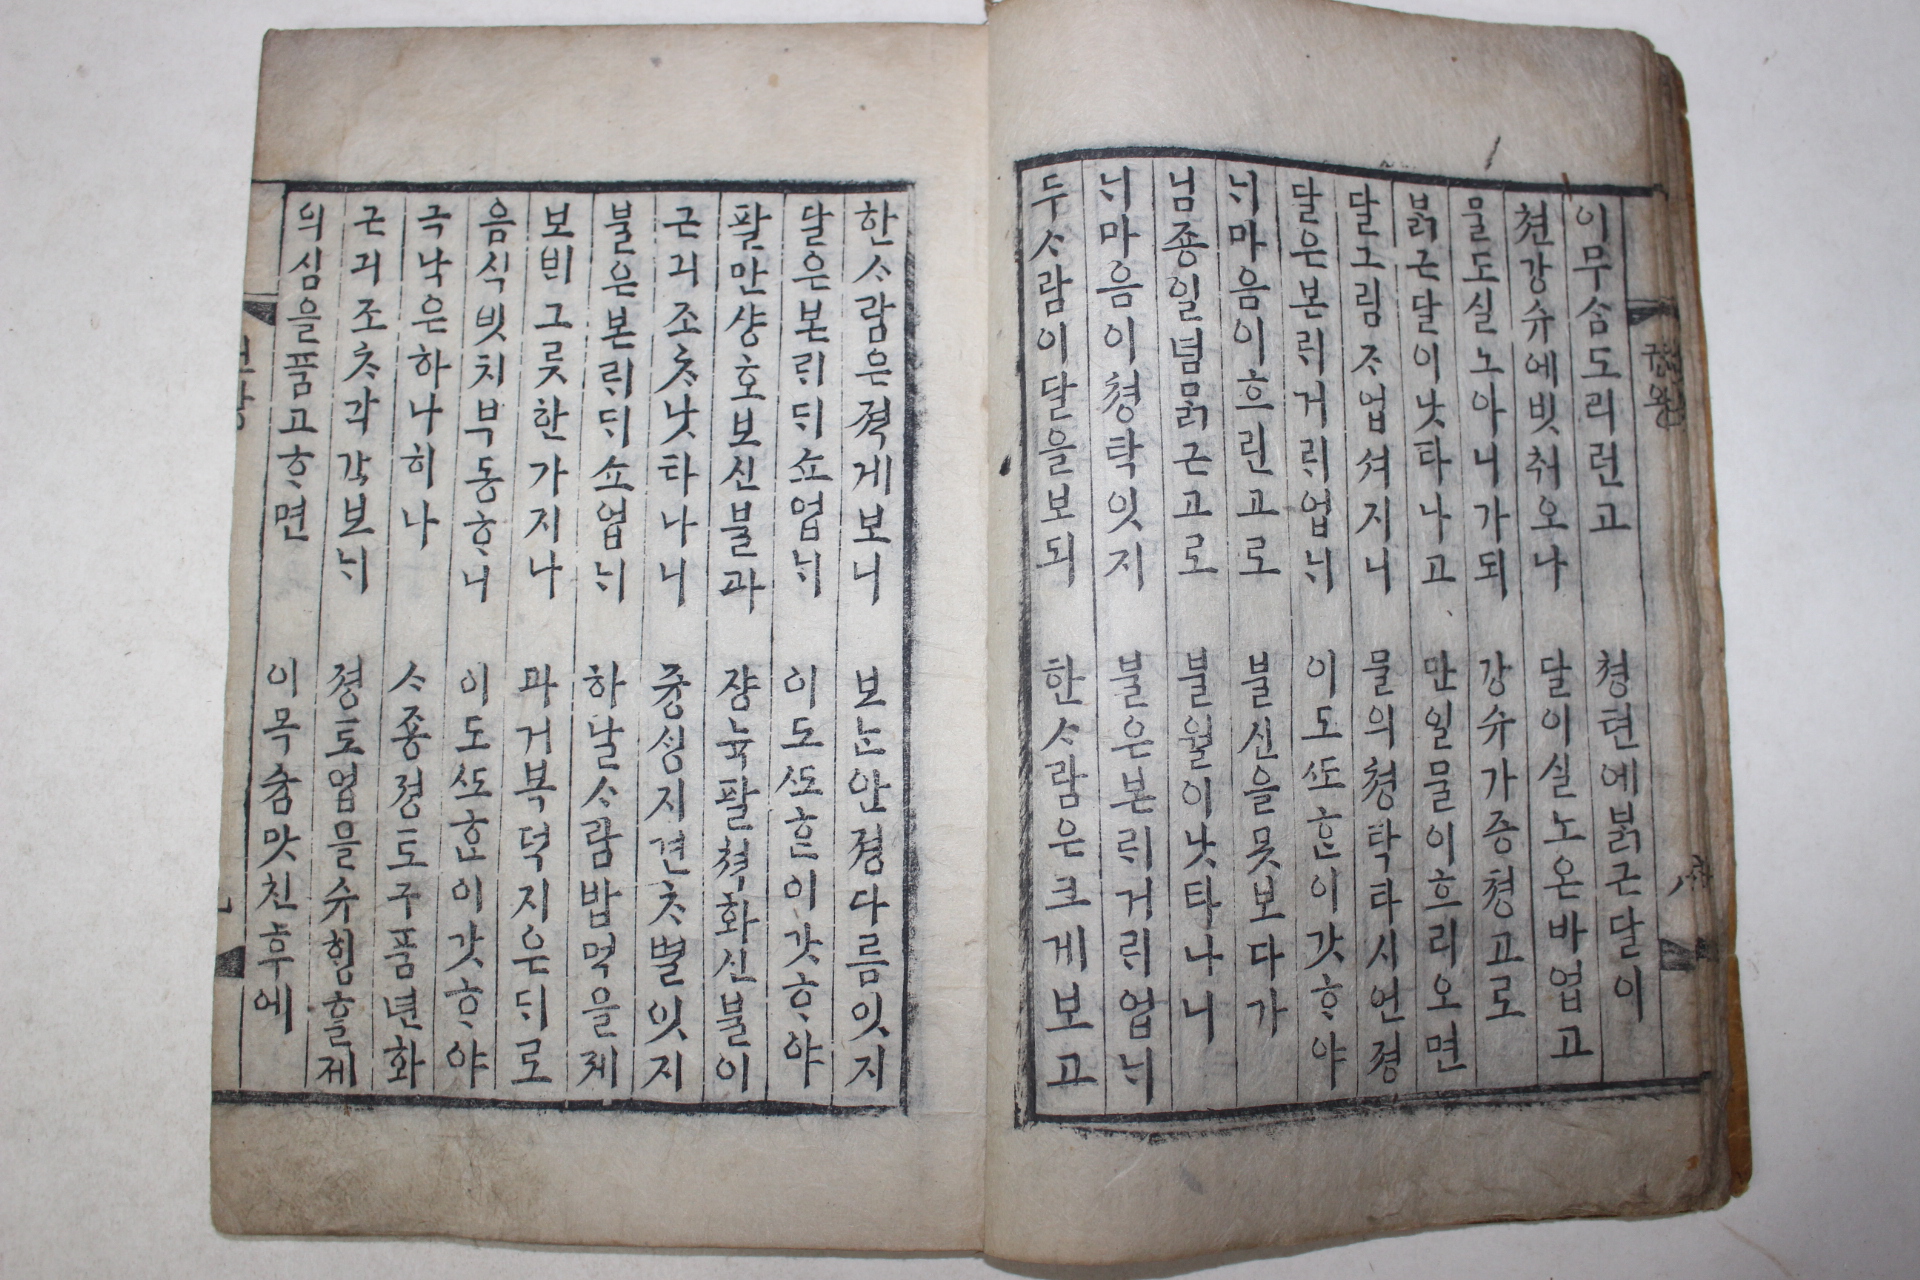 이무ᄉᆞᆷ도리런고 쳥텬에붉근달이
쳔강슈에빗취오나 달이실노온바업고
물도실노아니가되 강슈가증쳥고로
붉근달이낫타나고 만일물이흐리오면
달그림ᄌᆞ업셔지니 물의쳥탁타시언졍
달은본ᄅᆡ거ᄅᆡ업ᄂᆡ 이도ᄯᅩᄒᆞᆫ이갓ᄒᆞ야
ᄂᆡ마음이흐린고로 불신을못보다가
념죵일념ᄆᆞᆰ근고로 불월이낫타나니
ᄂᆡ마음이쳥탁잇지 불은본ᄅᆡ거ᄅᆡ업ᄂᆡ
두ᄉᆞ람이달을보되 한ᄉᆞ람은크게보고
한ᄉᆞ람은젹게보니 보ᄂᆞᆫ안졍다름잇지
달은본ᄅᆡᄃᆡ쇼업ᄂᆡ 이도ᄯᅩᄒᆞᆫ이갓ᄒᆞ야
팔만샹호보신불과 쟝뉵팔쳑화신불이
근긔조ᄎᆞ낫타나니 즁ᄉᆡᆼ지견ᄎᆞ별잇지
불은본ᄅᆡᄃᆡ쇼업ᄂᆡ 하날ᄉᆞ람밥먹을졔
보ᄇᆡ그릇한가지나 과거복덕지은ᄃᆡ로
음식빗치부동ᄒᆞ니 이도ᄯᅩᄒᆞᆫ이갓ᄒᆞ야
극낙은하나히나 ᄉᆞ죵졍도구품년화
근긔조ᄎᆞ각각보ᄂᆡ 졍도업을슈ᄒᆡᆼᄒᆞᆯ제
의심을품고ᄒᆞ면 이목슘맛친후에
권왕